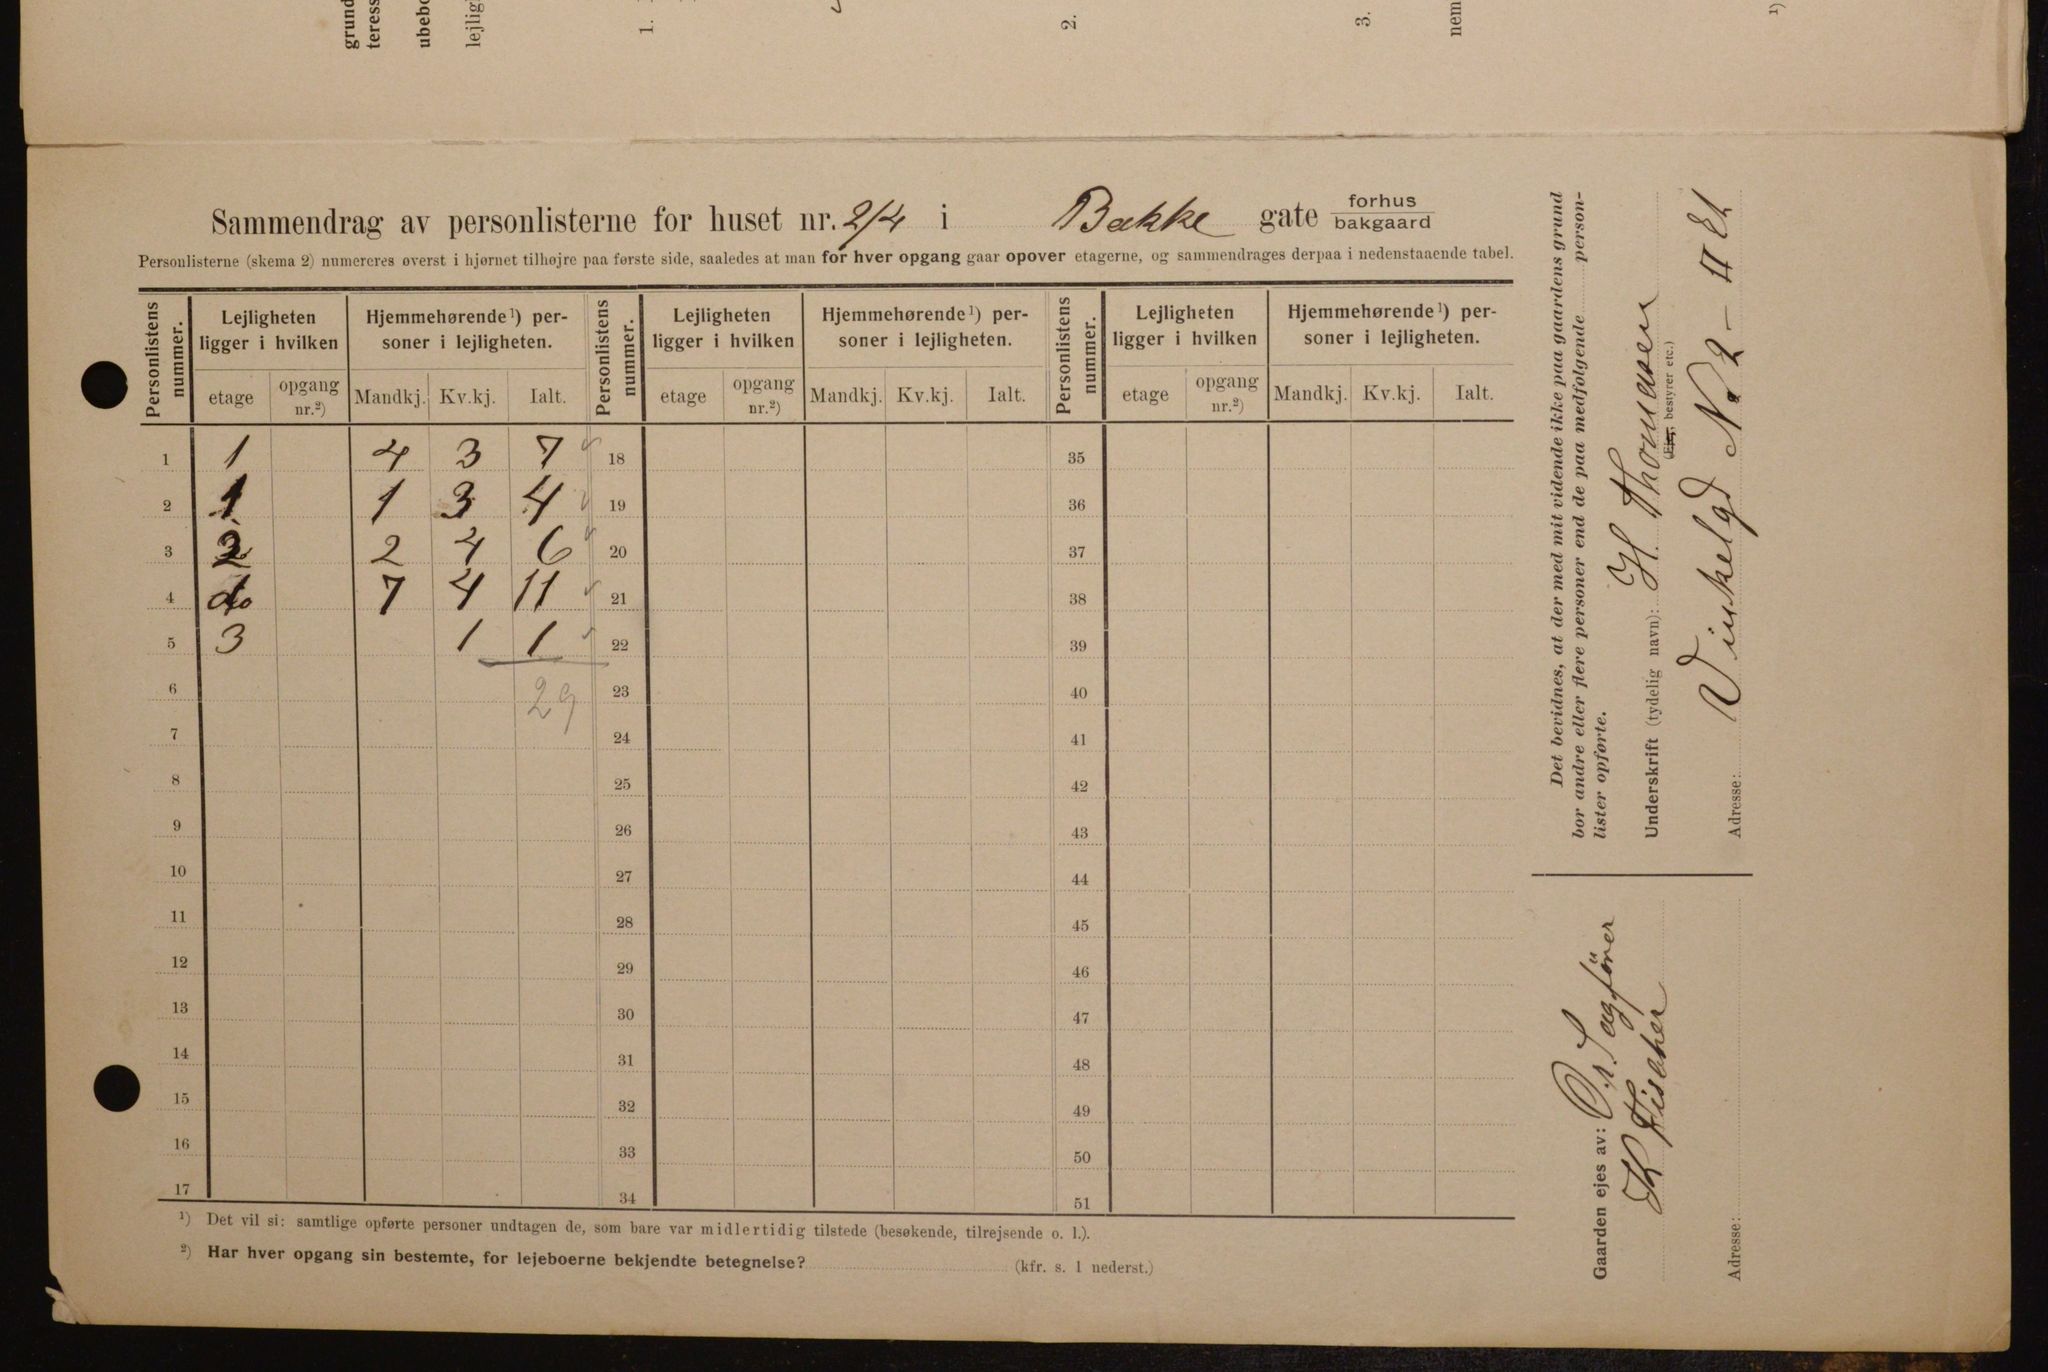 grund
teress
ubebo
lejlig
1.
2.
3.
nem
¹)
Sammendrag av personlisterne for huset nr. 2/4 i Bakke gate forhus
bakgaard
Personlisterne (skema 2) numereres øverst i hjørnet tilhøjre paa første side, saaledes at man for hver opgang gaar opover etagerne, og sammendrages derpaa i nedenstaaende tabel.
Personlistens nummer. Lejligheten ligger i hvilken Hjemmehørende¹) personer i lejligheten. Personlistens nummer. Lejligheten ligger i hvilken Hjemmehørende¹) personer i lejligheten. Personlistens nummer. Lejligheten ligger i hvilken Hjemmehørende¹) personer i lejligheten.
etage opgang nr.²) Mandkj. Kv.kj. Ialt. etage opgang nr.²) Mandkj. Kv.kj. Ialt. etage opgang nr.²) Mandkj. Kv.kj. Ialt.
1 1 4 3 7 18 35
2 1 1 3 4 19 36
3 2 2 4 6 20 37
4 do 7 4 11 21 38
5 3 1 1 22 39
6 29 23 40
7 24 41
8 25 42
9 26 43
10 27 44
11 28 45
12 29 46
13 30 47
14 31 48
15 32 49
16 33 50
17 34 51
¹) Det vil si: samtlige opførte personer undtagen de, som bare var midlertidig tilstede (besøkende, tilrejsende o. l.).
²) Har hver opgang sin bestemte, for lejeboerne bekjendte betegnelse? (kfr. s. 1 nederst.)
Det bevidnes, at der med mit vidende ikke paa gaardens grund
bor andre eller flere personer end de paa medfølgende person-
lister opførte.
Underskrift (tydelig navn): H. Thomasen
(Eier, bestyrer etc.)
Adresse: Vinkelgd No 2 - II Et
Gaarden ejes av: O.r. Sagförer
K Fischer
Adresse: